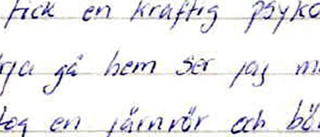 fick en kraftig psyko
ga gå hem ser jag m
tog en järnrör och bö